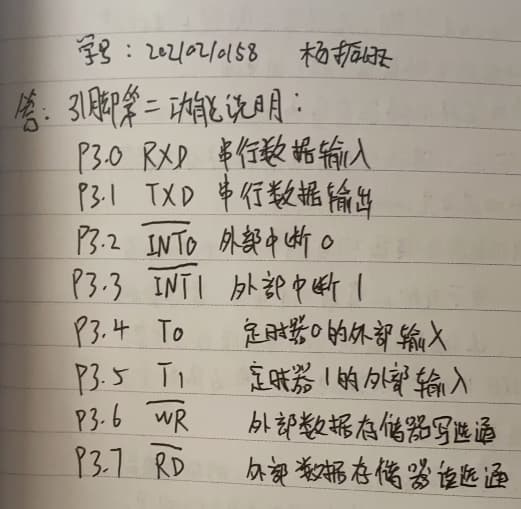 学号：202102010158 杨振旺
答：引脚第二功能说明：
P3.0 RXD 串行数据输入
P3.1 TXD 串行数据输出
P3.2 I̅N̅T̅0̅ 外部中断0
P3.3 I̅N̅T̅1̅ 外部中断1
P3.4 T0 定时器0的外部输入
P3.5 T1 定时器1的外部输入
P3.6 W̅R̅ 外部数据存储器写选通
P3.7 R̅D̅ 外部数据存储器读选通